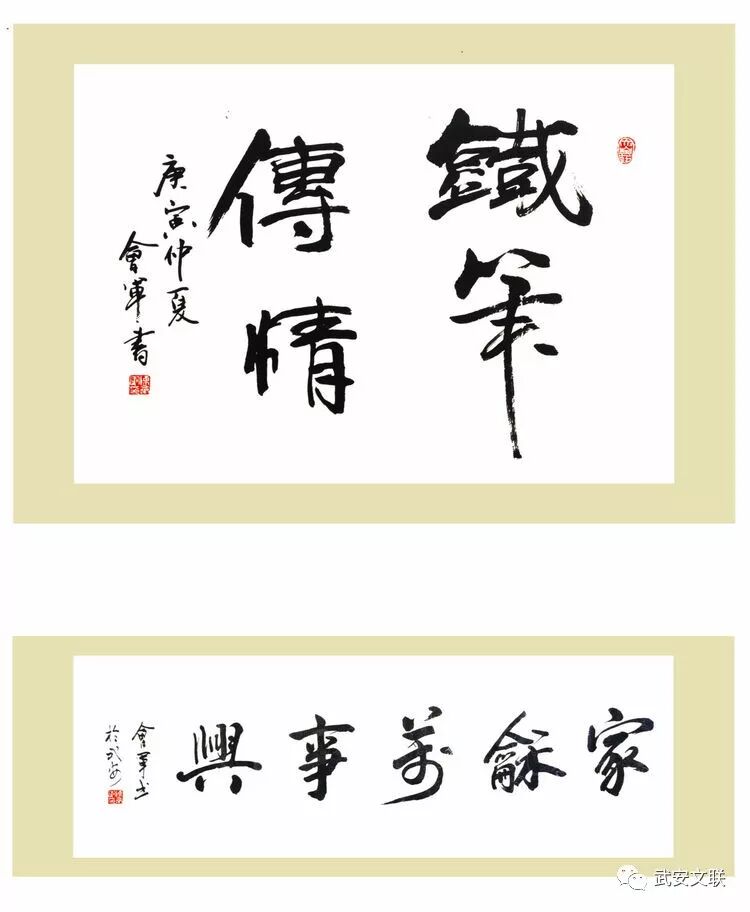 鐵筆
傳情
庚寅仲夏
會軍書
家龢萬事興
會軍书
於武安
武安文联